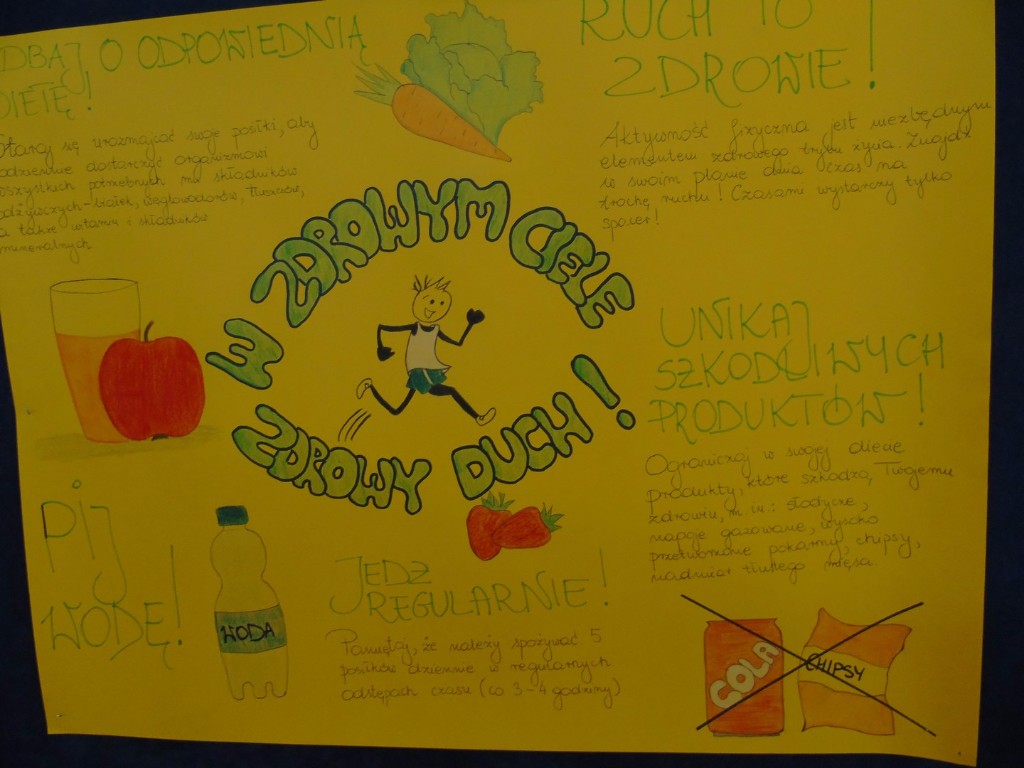 DBAJ O ODPOWIEDNIĄ
DIETĘ!
Staraj się urozmaicać swoje posiłki, aby
codziennie dostarczać organizmowi
wszystkich potrzebnych mu składników
odżywczych - białek, węglowodorów, tłuszczów,
a także witamin i składników
mineralnych
RUCH TO
ZDROWIE!
Aktywność fizyczna jest niezbędnym
elementem zdrowego trybu życia. Znajdź
w swoim planie dnia czas na
trochę ruchu! Czasami wystarczy tylko
spacer!
W ZDROWYM CIELE
ZDROWY DUCH!
UNIKAJ
SZKODLIWYCH
PRODUKTÓW!
Ograniczaj w swojej diecie
produkty, które szkodzą Twojemu
zdrowiu, m.in.: słodycze,
napoje gazowane, wysoko
przetworzone pokarmy, chipsy,
nadmiar tłustego mięsa.
PIJ
WODĘ!
WODA
JEDZ
REGULARNIE!
Pamiętaj, że należy spożywać 5
posiłków dziennie w regularnych
odstępach czasu (co 3-4 godziny)
COLA
CHIPSY